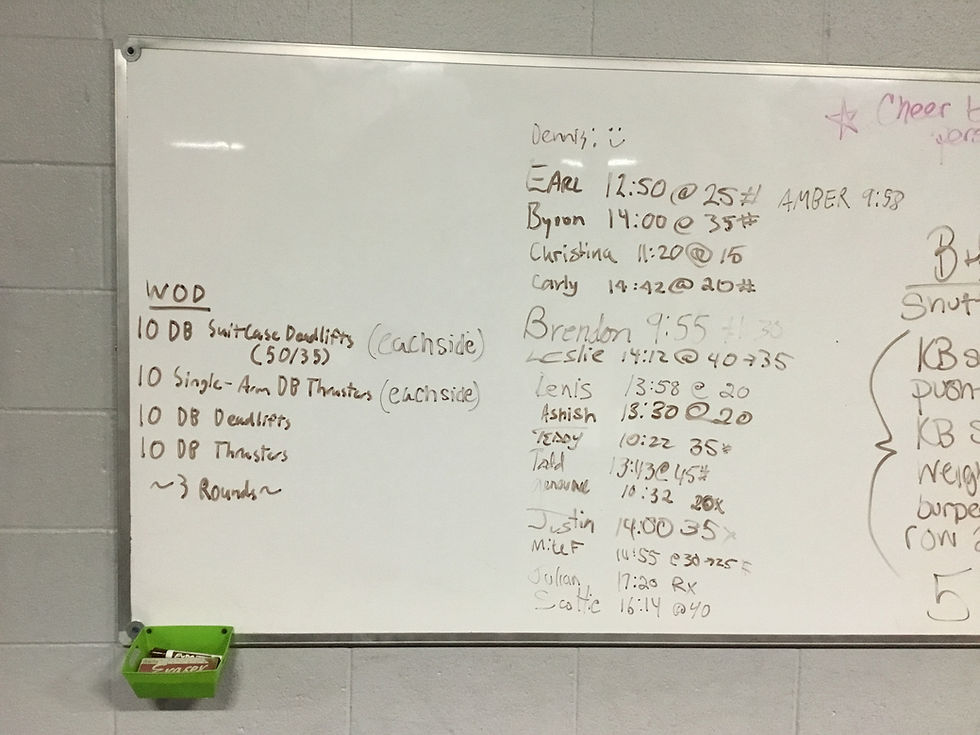 WOD
10 DB Suitcase Deadlifts (each side)
(50/35)
10 Single-Arm DB Thrusters (each side)
10 DB Deadlifts
10 DB Thrusters
~3 Rounds~
Dennis: :)
EARL 12:50 @ 25# AMBER 9:58
Byron 14:00 @ 35#
Christina 11:20 @ 15
Carly 14:42 @ 20#
Brendon 9:55 30
Leslie 14:12 @ 40→35
Lenis 13:58 @ 20
Ashish 13:30 @ 20
TEDDY 10:22 35#
Todd 13:43 @ 45#
10:32 20x
Justin 14:00 35
Mike F 14:55 @ 30→25#
Julian 17:20 Rx
Scottie 16:14 @ 40
☆ Cheer
B
KB
push-
KB
burpe
row
5
EXPO